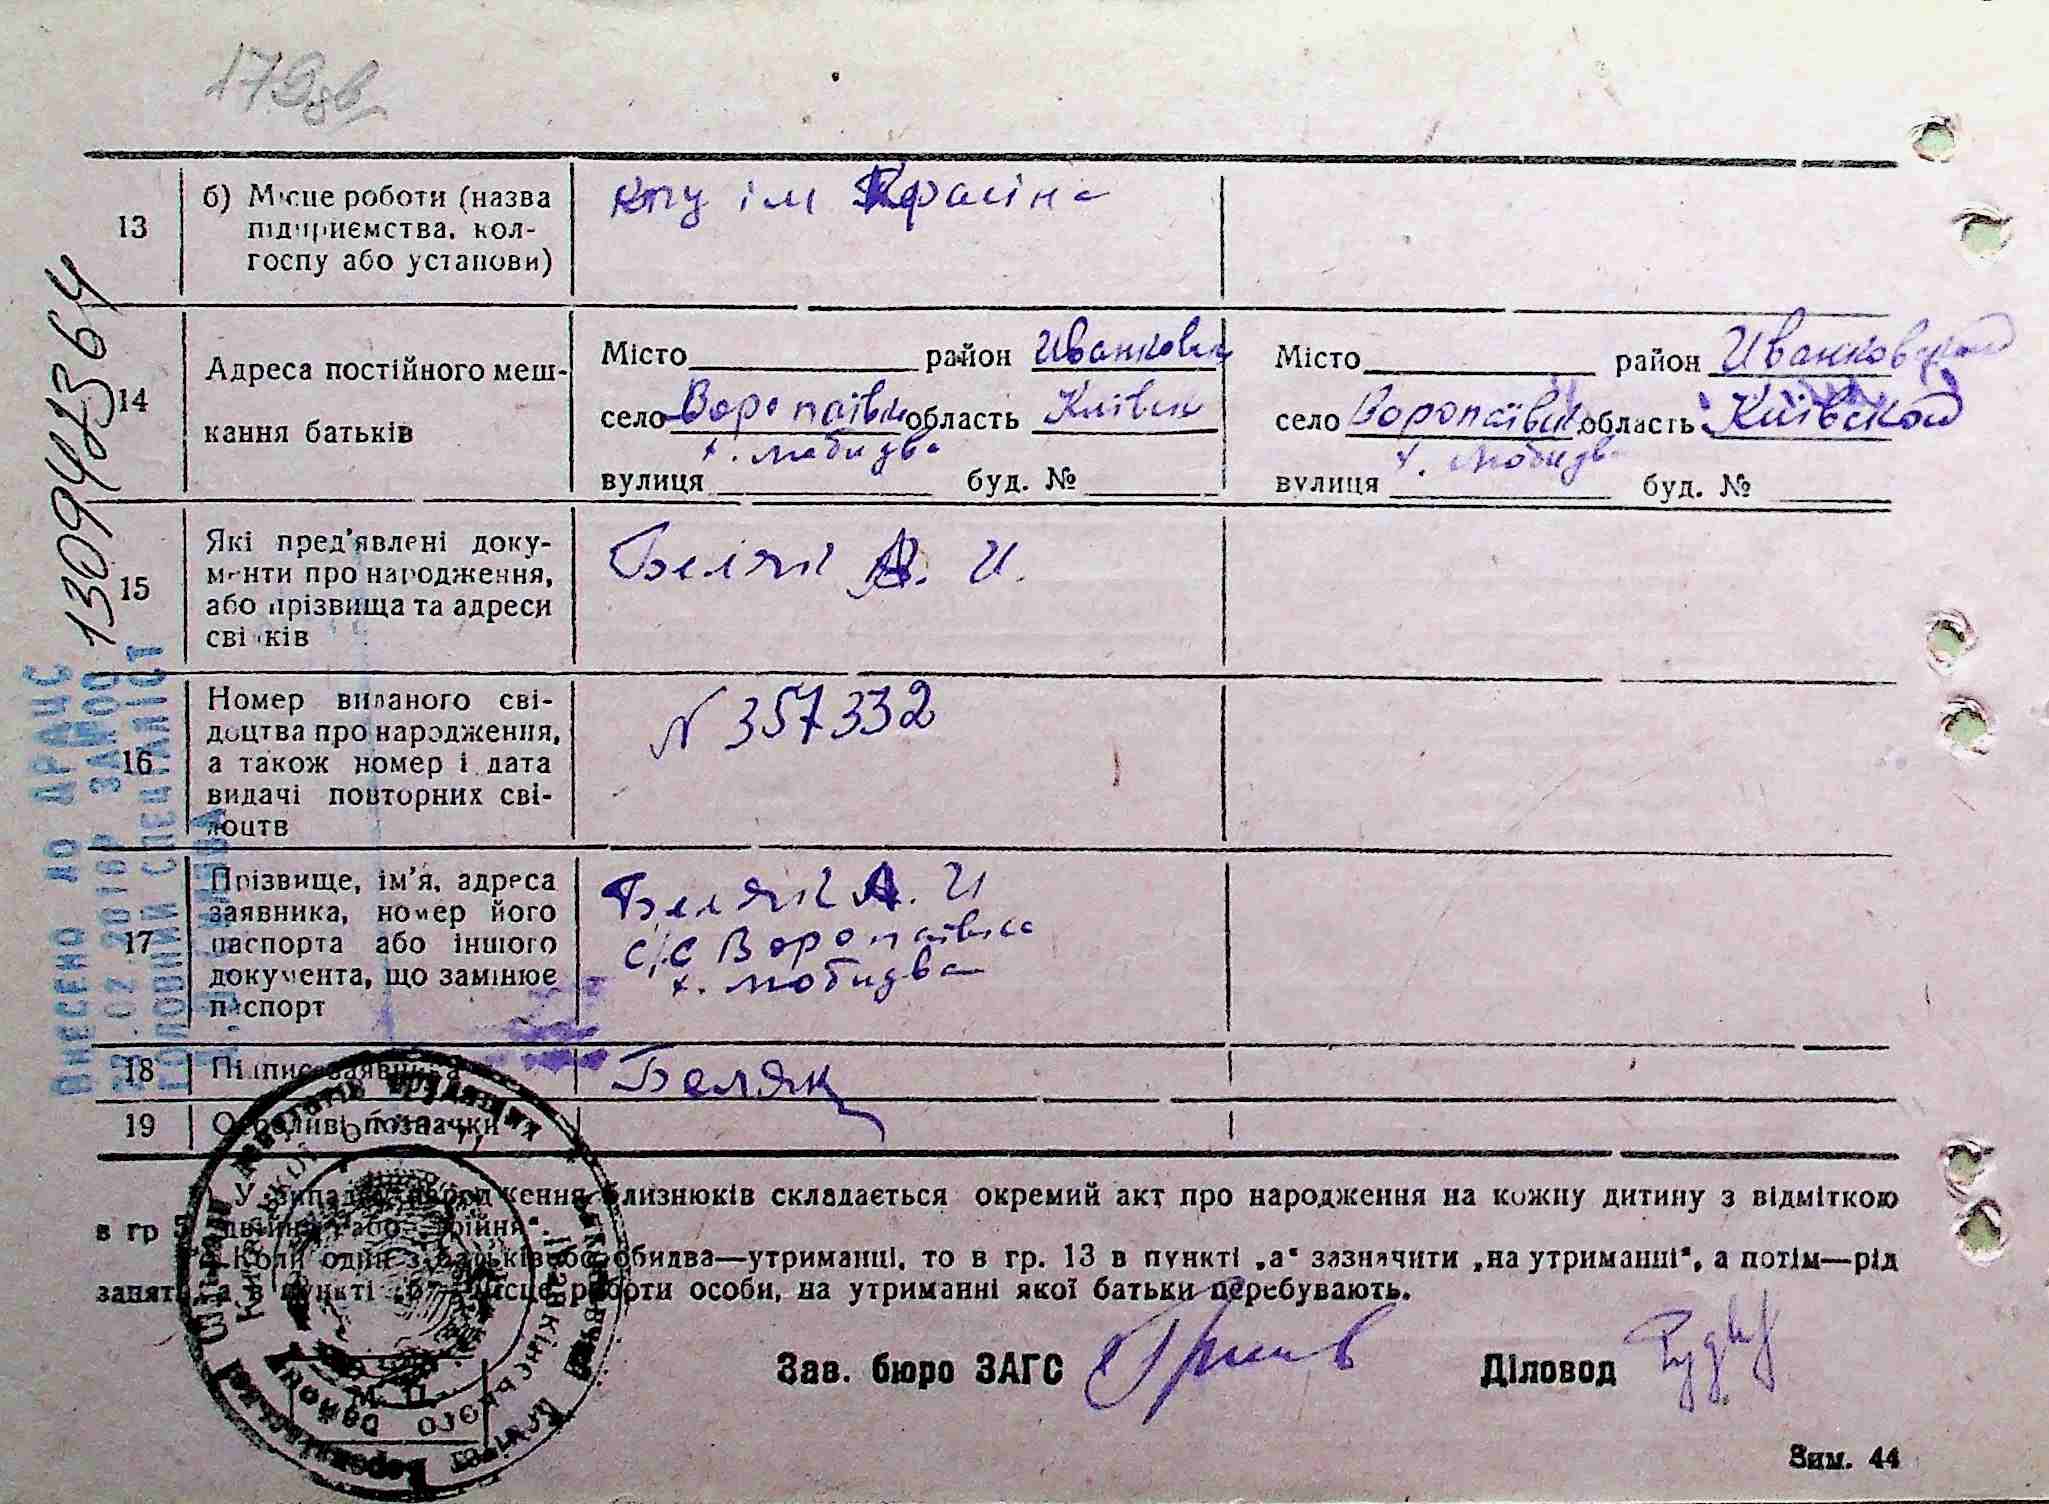 13
б) Місце роботи (назва
підприємства, кол-
госпу або установи)
ім
14
Адреса постійного меш-
кання батьків
Місто район Иванковск
село Воропаївк область Київск
вулиця буд. №
Місто район Иванковской
село Воропаївк область Київской
вулиця буд. №
15
Які пред'явлені доку-
менти про народження,
або прізвища та адреси
свідків
Беляк А. И.
16
Номер виданого сві-
доцтва про народження,
а також номер і дата
видачі повторних сві-
доцтв
N 357332
17
Прізвище, ім'я, адреса
заявника, номер його
паспорта або іншого
документа, що замінює
паспорт
Беляк А. И
с/с Воропаївка
18
Підпис заявника
Беляк
19
Особливі позначки
У випадку народження близнюків складається окремий акт про народження на кожну дитину з відміткою
в гр 5 „двійня“ або „трійня“.
Коли один з батьків або обидва—утриманці, то в гр. 13 в пункті „а“ зазначити „на утриманні“, а потім—рід
занять, а в пункті „б“—місце роботи особи, на утриманні якої батьки перебувають.
Зав. бюро ЗАГС
Діловод
М. П.
Зим. 44
ВНЕСЕНО ДО ДРАЦС
ГОЛОВНИЙ СПЕЦІАЛІСТ